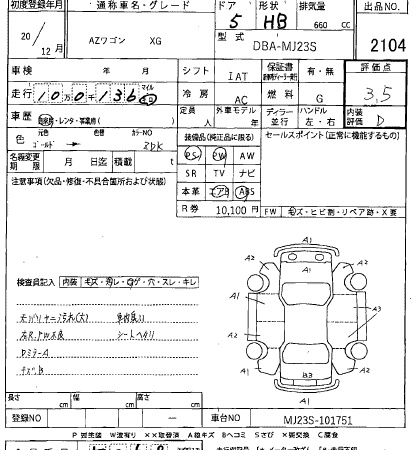 初度登録年月 通称車名・グレード ドア 形状 排気量 出品NO.
20/12月 AZワゴン XG 5 HB 660 cc
型式 DBA-MJ23S 2104
車検 年 月 シフト IAT 保証書 有・無 評価点
走行 100千136 マイル 冷房 AC 燃料 G 3.5
車歴 自家用・レンタ・事業用( ) 定員 人 外車モデル 年 ディーラー 並行 ハンドル 左・右 内装評価 D
色 元色 ゴールド → カラーNO ZDK
装備品(純正品に限る) セールスポイント(正常に機能するもの)
PS PW AW
名義変更期限 月 日迄 積載 t SR TV ナビ
注意事項(欠品・修復・不具合箇所および状態) 本革 エアB ABS
R券 10,100 円 FW キズ・ヒビ割・リペア跡・X要
検査員記入 内装 キズ・汚レ・コゲ・穴・スレ・キレ
A1
A2 A2
A1 A1
A1 A3
A2 A2
A1 A1
B3
長さ cm 幅 cm 高さ cm
登録NO ー 車台NO MJ23S-101751
P 要塗装 W波有り ××取替済 A線キズ Bヘコミ Sさび ×要交換 C腐食